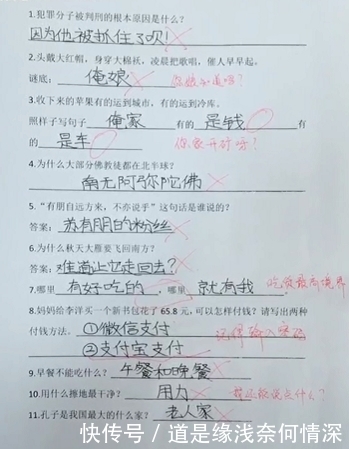 1.犯罪分子被判刑的根本原因是什么?
因为他被抓住了呗!
2.头戴大红帽,身穿大棉袄,凌晨把歌唱,催人早早起。
谜底: 俺娘
3.收下来的苹果有的运到城市,有的运到冷库。
照样子写句子 俺家 有的 是钱 有
的 是车 你家开矿呀?
4.为什么大部分佛教徒都在北半球?
南无阿弥陀佛
5.“有朋自远方来,不亦说乎”这句话是谁说的?
答案: 苏有朋的粉丝
6.为什么秋天大雁要飞回南方?
答案: 难道让它走回去?
7.哪里 有好吃的 ,哪里 就有我 。 吃货最高境界
8.妈妈给李洋买一个新书包花了 65.8 元,可以怎样付钱?请写出两种
付钱方法。 ①微信支付 记得输入密码
②支付宝支付
9.早餐不能吃什么? 午餐和晚餐
10.用什么擦地最干净? 用力
11.孔子是我国最大的什么家? 老人家
快传号/道是缘浅奈何情深